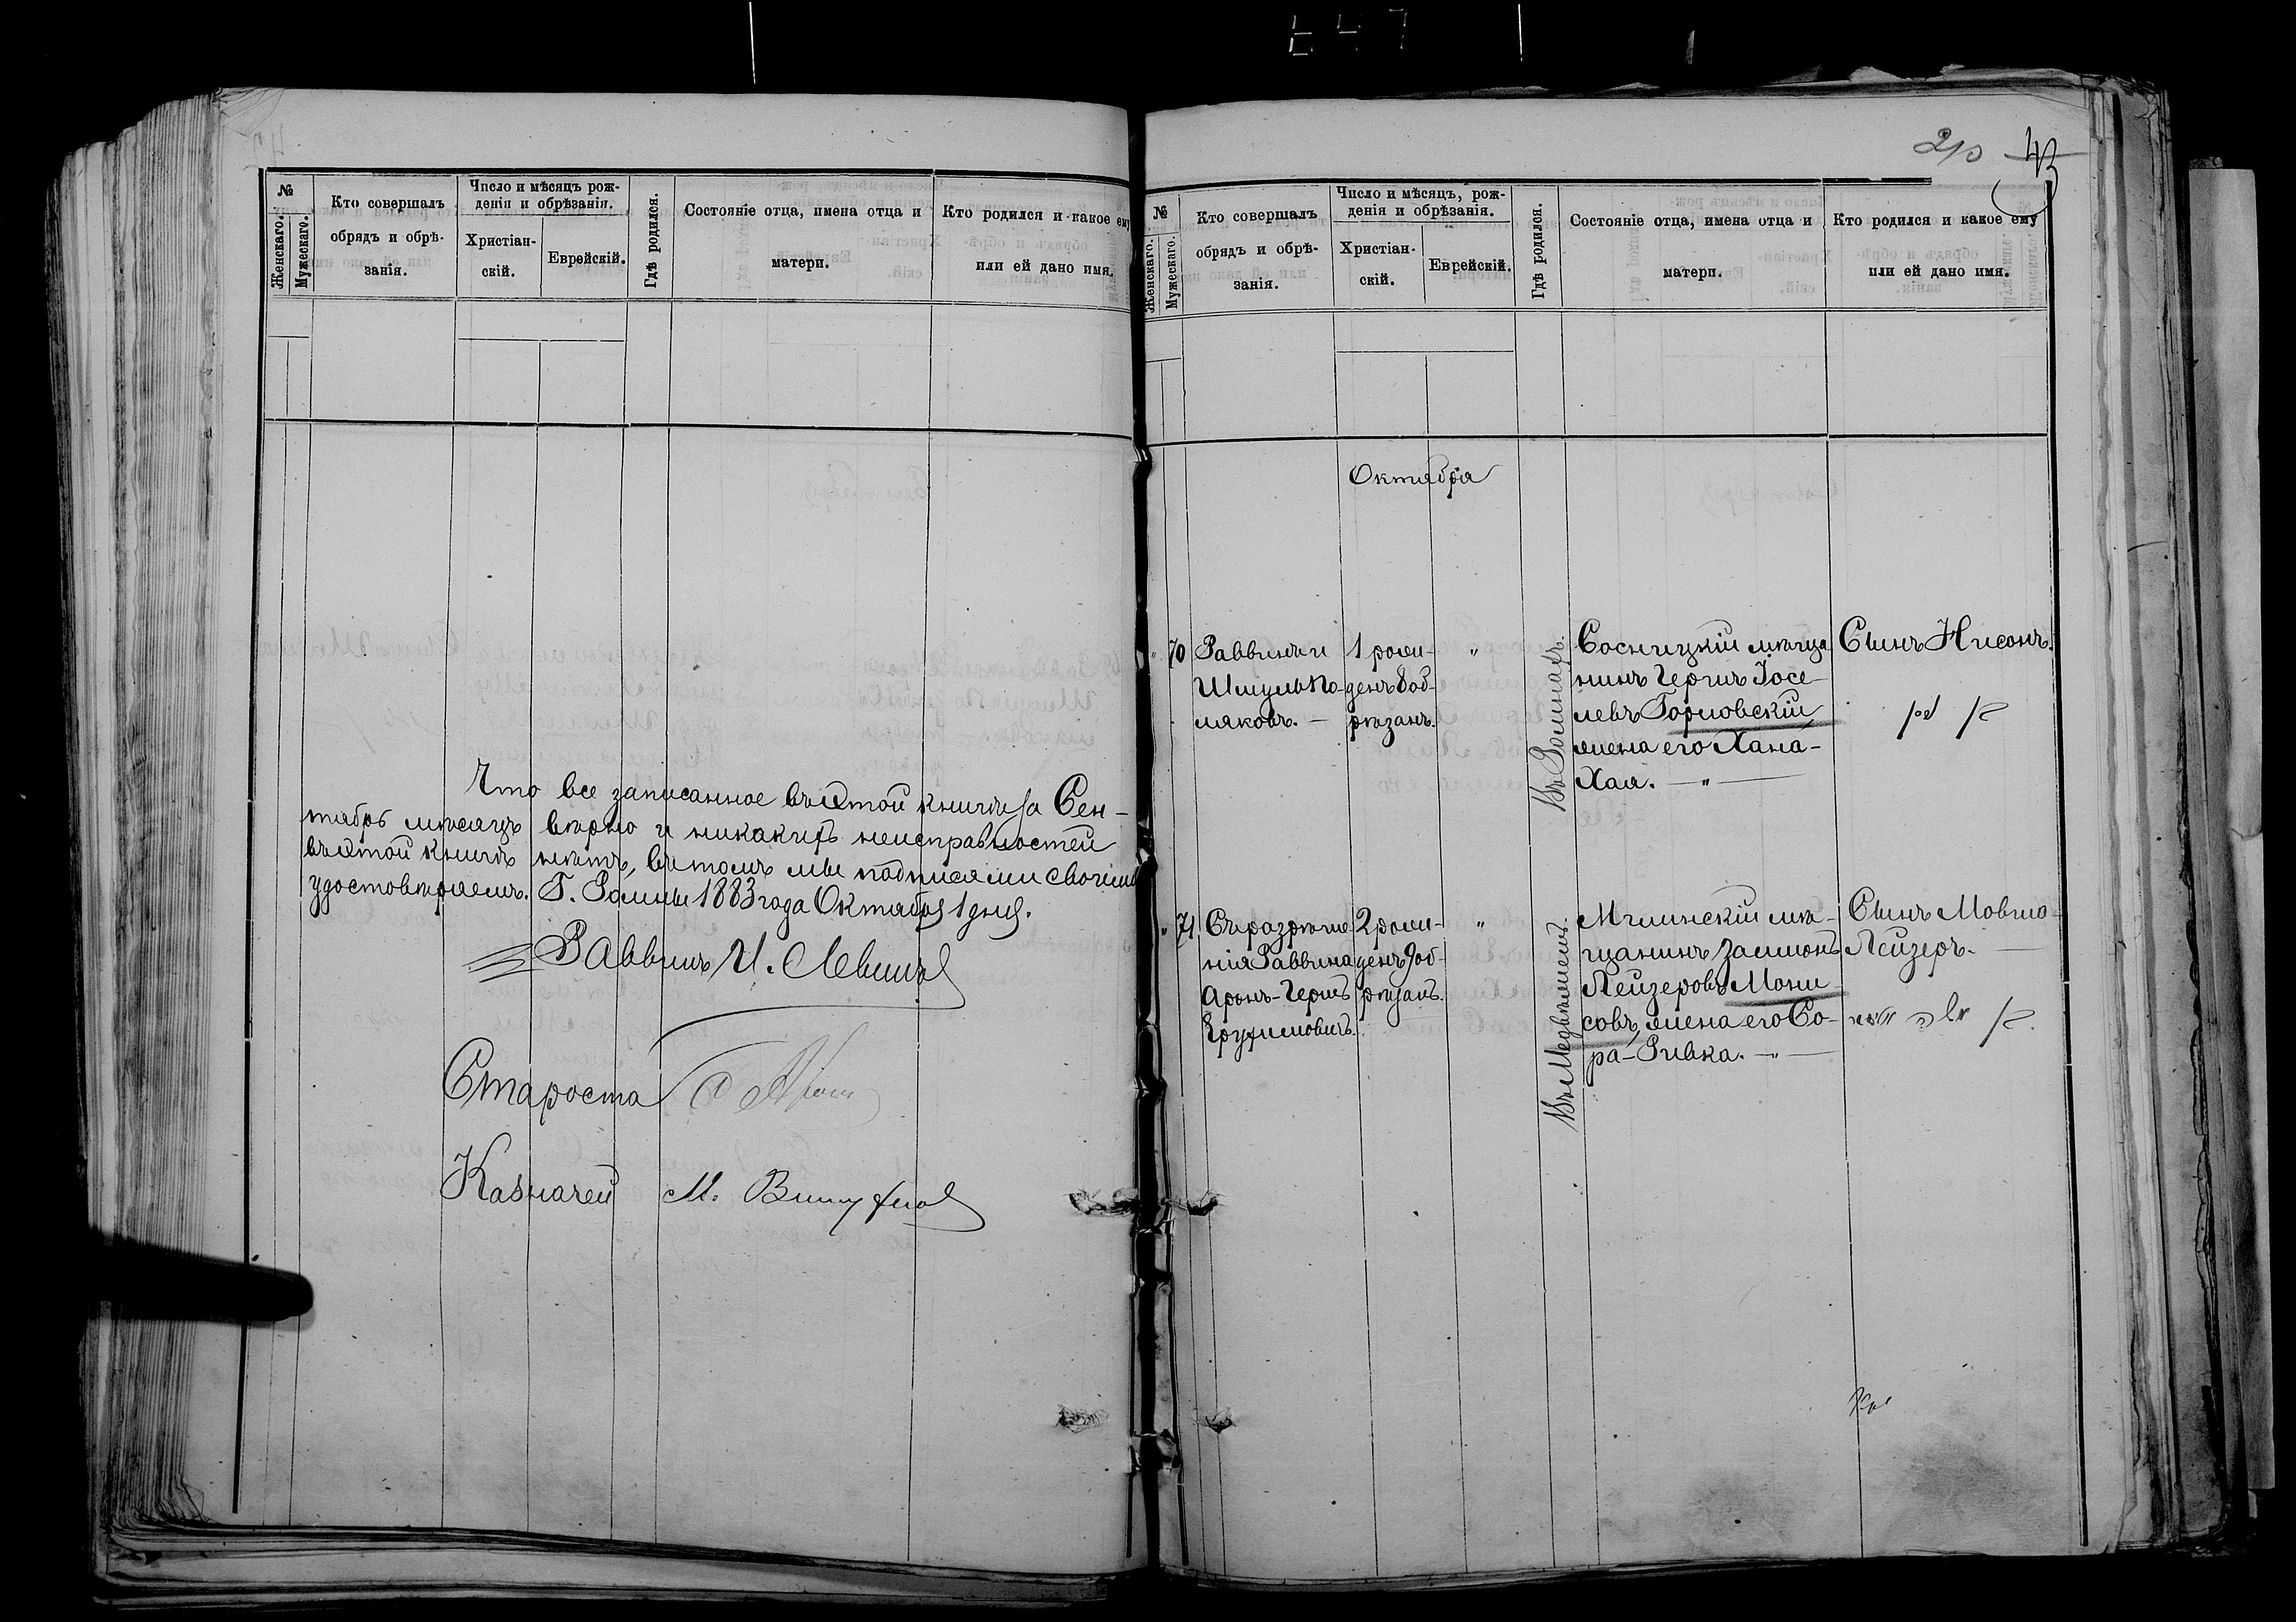 №
Женскаго.
Мужескаго.
Кто совершалъ
обрядъ и обрѣ-
занія.
Число и мѣсяцъ рож-
денія и обрѣзанія.
Христіан-
скій.
Еврейскій.
Гдѣ родился.
Состояніе отца, имена отца и
матери.
Кто родился и какое ему
или ей дано имя.
Что все записанное въ этой книгѣ за Сен-
тябрь мѣсяцъ вѣрно и никакихъ неисправностей
въ этой книгѣ нѣтъ, въ томъ мы подписями своими
удостовѣряемъ. Г. Ромны 1883 года Октября 1 дня.
Раввинъ И. Левинъ
Староста
Казначей М.
43
№
Женскаго.
Мужескаго.
Кто совершалъ
обрядъ и обрѣ-
занія.
Число и мѣсяцъ, рож-
денія и обрѣзанія.
Христіан-
скій.
Еврейскій.
Гдѣ родился.
Состояніе отца, имена отца и
матери.
Кто родился и какое ему
или ей дано имя.
Октября
" 70
Раввинъ и
Шмуль По-
ляковъ. —
1 рож-
денъ 8 об-
рѣзанъ.
"
Въ Ромнахъ.
Сосницкій мѣща
нинъ Герцъ Іосе-
левъ Горловскій
жена его Хана-
Хая. — " —
Сынъ Нисонъ.
" 71
Съ разрѣше
нія Раввина
Аронъ-Гершъ
Ерухимовичъ.
2 рож-
денъ 9 об-
рѣзанъ.
"
Въ Медвѣжемъ.
Мглинскій мѣ-
щанинъ Залмонъ
Лейзеровъ Мони
совъ, жена его Со-
ра-Ривка. — " —
Сынъ Мовша-
Лейзеръ. —